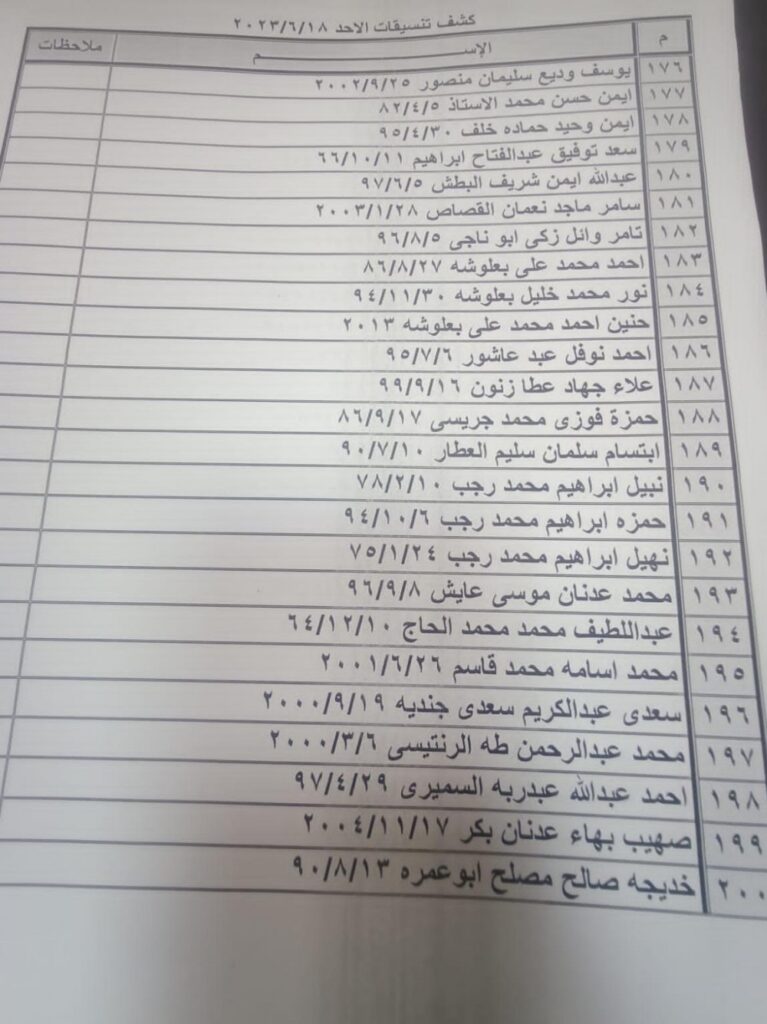 كشف تنسيقات الاحد ٢٠٢٣/٦/١٨
م الإســــم ملاحظات
١٧٦ يوسف وديع سليمان منصور ٢٠٠٢/٩/٢٥
١٧٧ ايمن حسن محمد الاستاذ ٨٢/٤/٥
١٧٨ ايمن وحيد حماده خلف ٩٥/٤/٣٠
١٧٩ سعد توفيق عبدالفتاح ابراهيم ٦٦/١٠/١١
١٨٠ عبدالله ايمن شريف البطش ٩٧/٦/٥
١٨١ سامر ماجد نعمان القصاص ٢٠٠٣/١/٢٨
١٨٢ تامر وائل زكى ابو ناجى ٩٦/٨/٥
١٨٣ احمد محمد على بعلوشه ٨٦/٨/٢٧
١٨٤ نور محمد خليل بعلوشه ٩٤/١١/٣٠
١٨٥ حنين احمد محمد على بعلوشه ٢٠١٣
١٨٦ احمد نوفل عبد عاشور ٩٥/٧/٦
١٨٧ علاء جهاد عطا زنون ٩٩/٩/١٦
١٨٨ حمزة فوزى محمد جريسى ٨٦/٩/١٧
١٨٩ ابتسام سلمان سليم العطار ٩٠/٧/١٠
١٩٠ نبيل ابراهيم محمد رجب ٧٨/٢/١٠
١٩١ حمزه ابراهيم محمد رجب ٩٤/١٠/٦
١٩٢ نهيل ابراهيم محمد رجب ٧٥/١/٢٤
١٩٣ محمد عدنان موسى عايش ٩٦/٩/٨
١٩٤ عبداللطيف محمد محمد الحاج ٦٤/١٢/١٠
١٩٥ محمد اسامه محمد قاسم ٢٠٠١/٦/٢٦
١٩٦ سعدى عبدالكريم سعدى جنديه ٢٠٠٠/٩/١٩
١٩٧ محمد عبدالرحمن طه الرنتيسى ٢٠٠٠/٣/٦
١٩٨ احمد عبدالله عبدربه السميرى ٩٧/٤/٢٩
١٩٩ صهيب بهاء عدنان بكر ٢٠٠٤/١١/١٧
٢٠٠ خديجه صالح مصلح ابوعمره ٩٠/٨/١٣